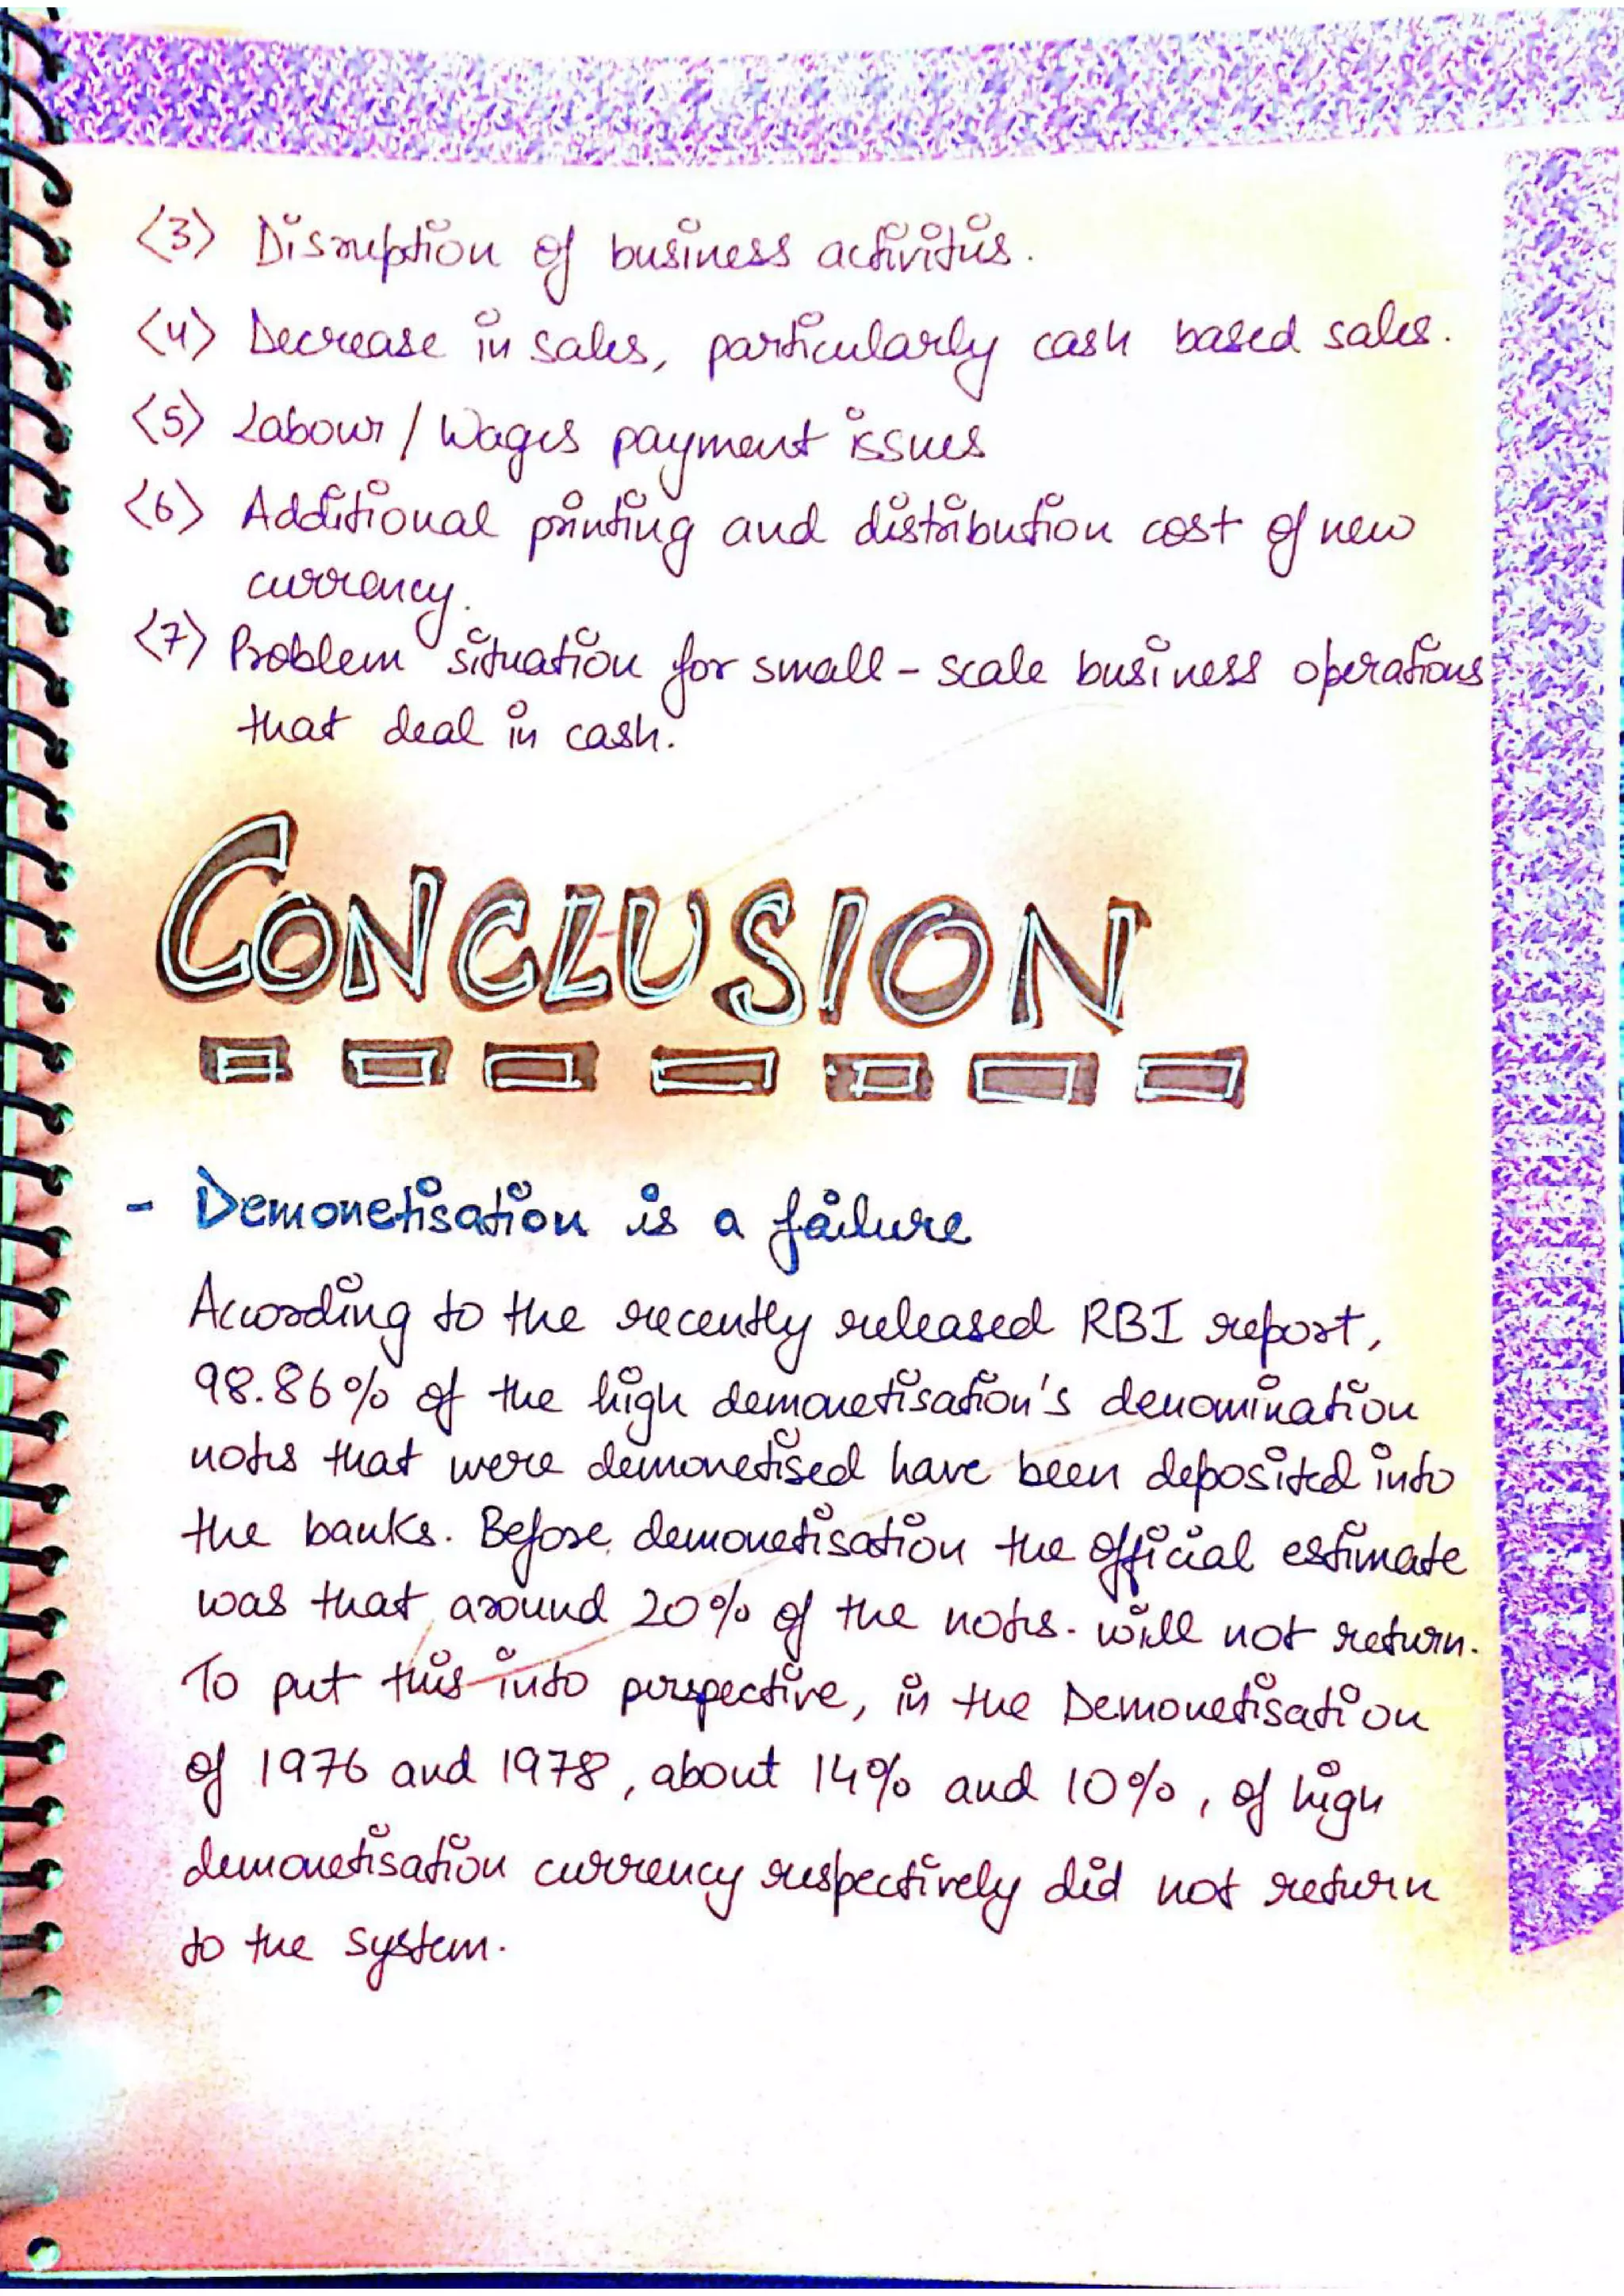 <3> Disruption of business activities.
<4> Decrease in sales, particularly cash based sales.
<5> Labour / Wages payment issues
<6> Additional printing and distribution cost of new
currency.
<7> Problem situation for small - scale business operations
that deal in cash.
CONCLUSION
- Demonetisation is a failure
According to the recently released RBI report,
98.86% of the high demonetisation's denomination
notes that were demonetised have been deposited into
the banks. Before demonetisation the official estimate
was that around 20% of the notes. will not return.
To put this into perspective, in the Demonetisation
of 1976 and 1978, about 14% and 10%, of high
demonetisation currency respectively did not return
to the system.